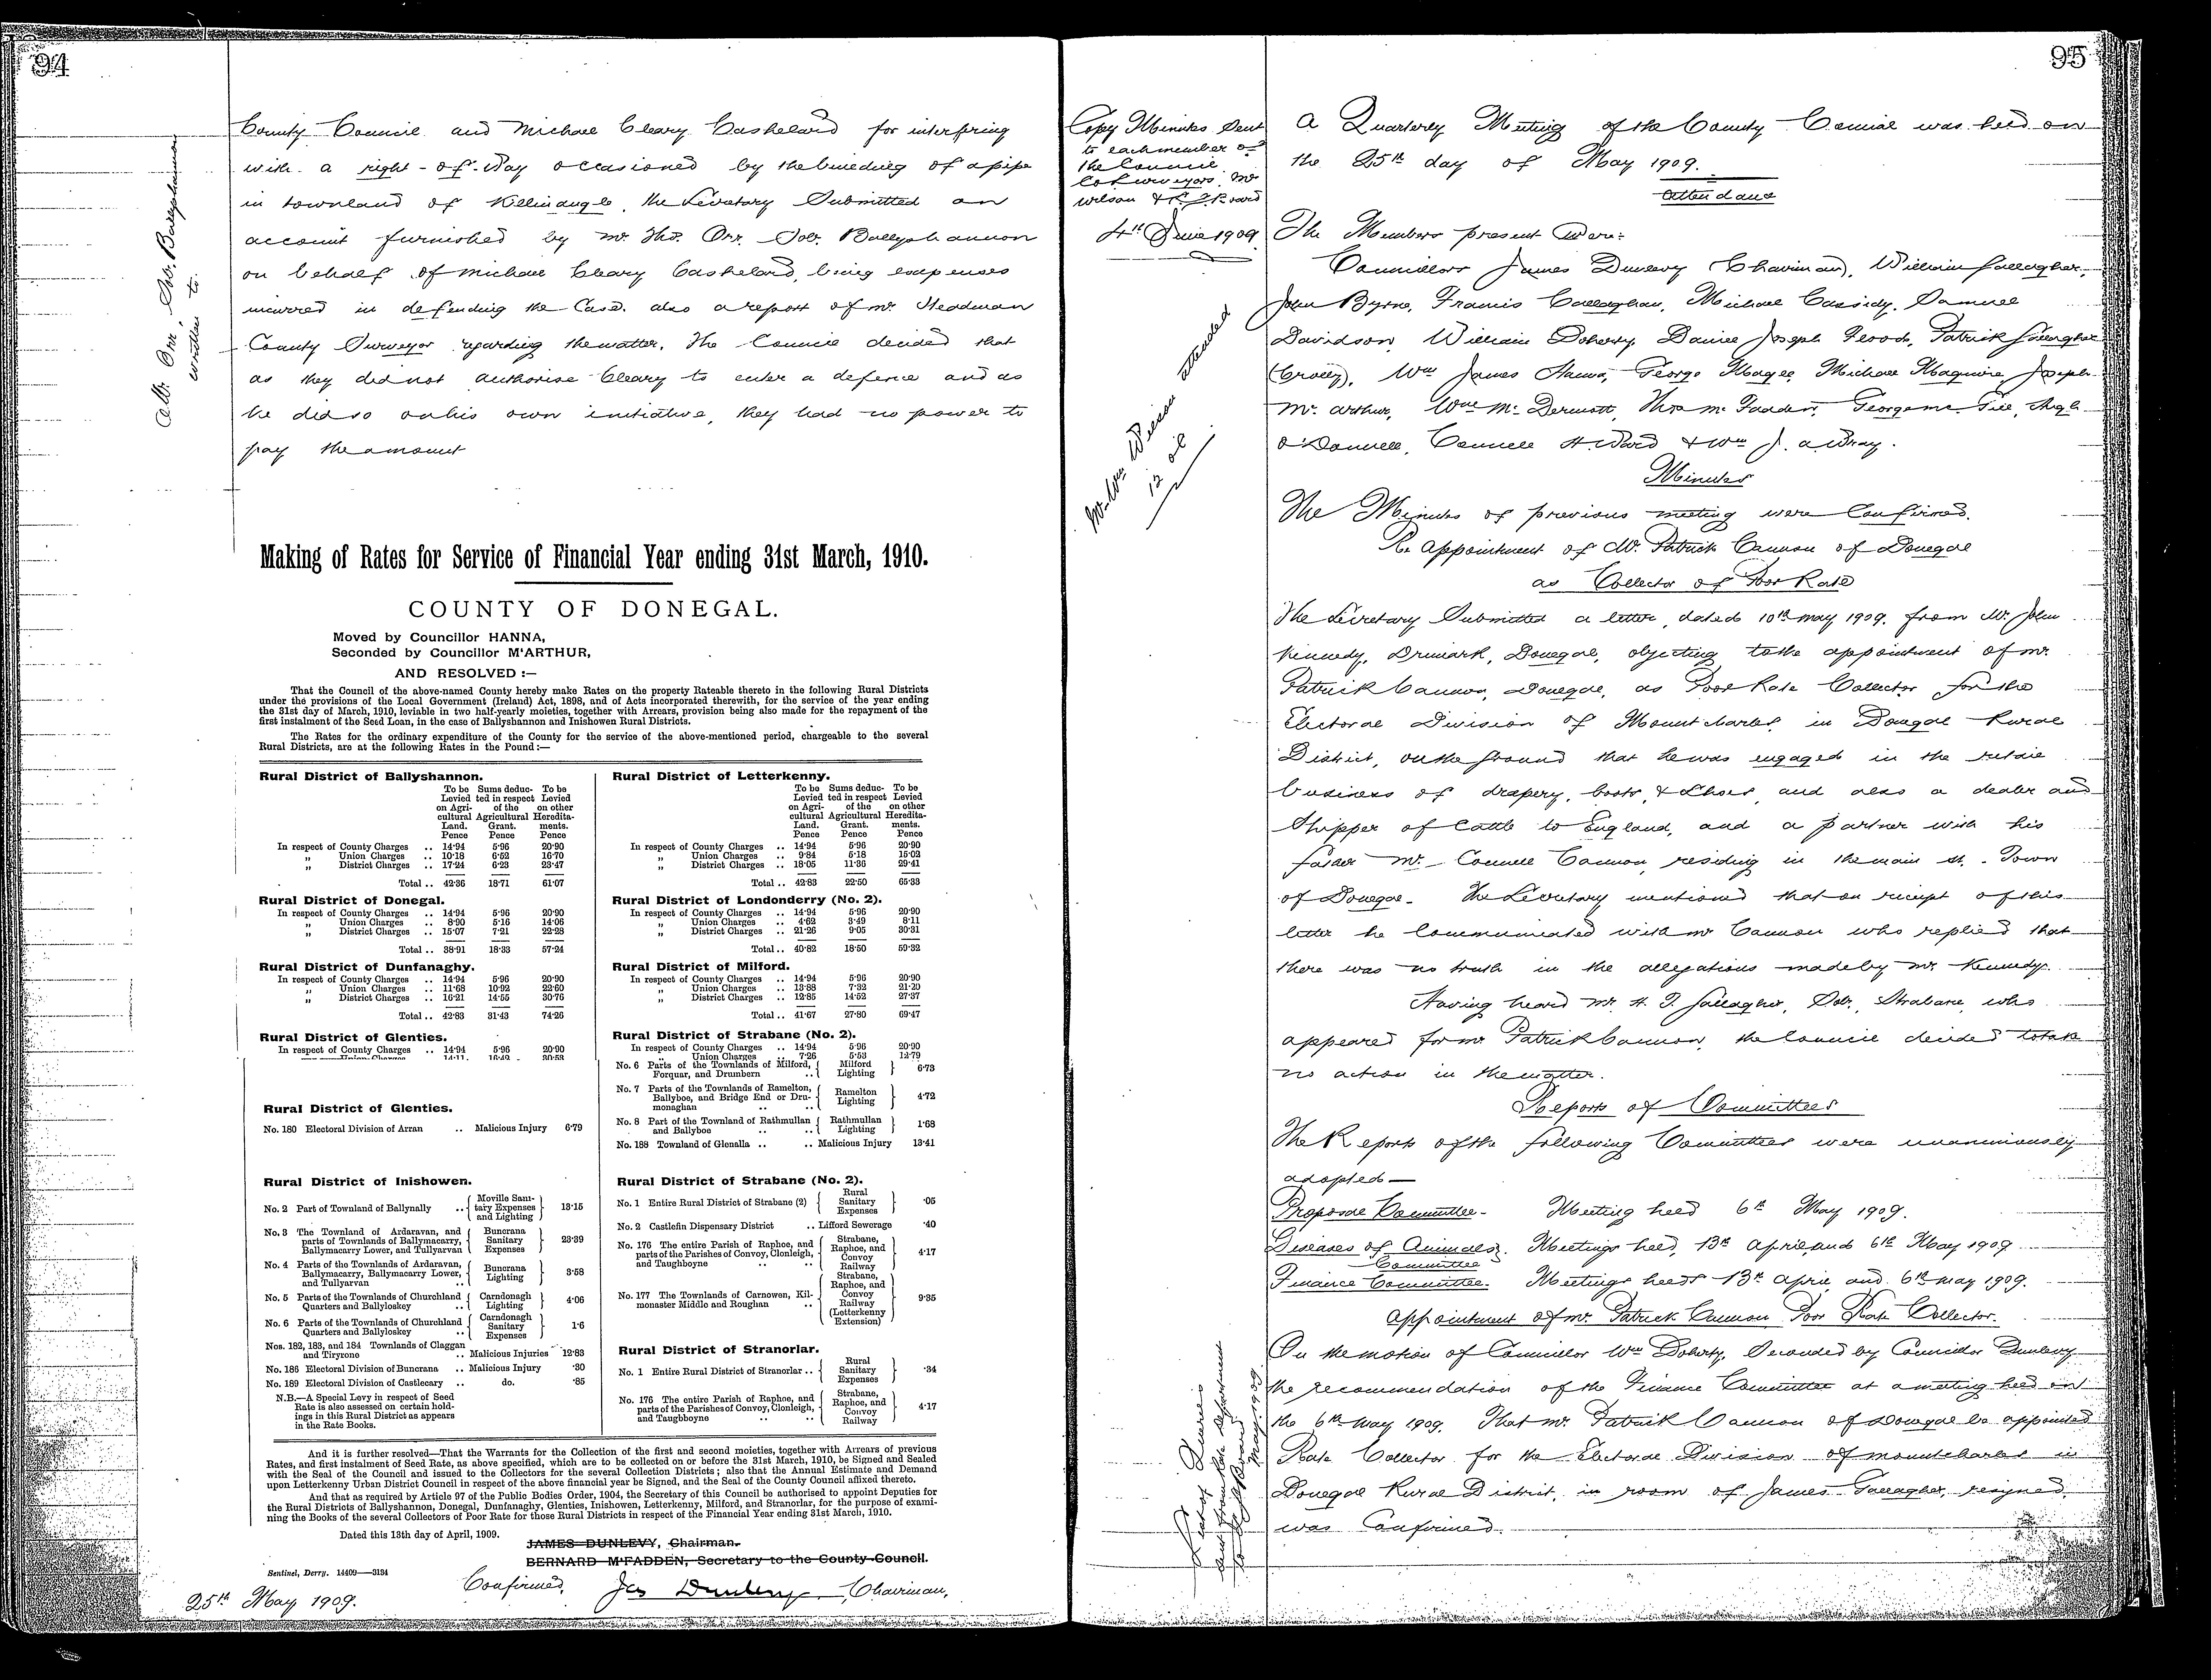 94
Mr. Orr, Sol. Ballyshannon
written to.
County Council and Michael Cleary Cashelard for interfering
with a right-of-way occasioned by the building of a pipe
in townland of Killinangle, the Secretary Submitted an
account furnished by Mr. Thos. Orr. Solr. Ballyshannon
on behalf of Michael Cleary Cashelard, being expenses
incurred in defending the Case. also a report of Mr. Steadman
County Surveyor regarding the matter. The Council decided that
as they did not authorise Cleary to enter a defence and as
he did so on his own initiative, they had no power to
pay the amount
Making of Rates for Service of Financial Year ending 31st March, 1910.
COUNTY OF DONEGAL.
Moved by Councillor HANNA,
Seconded by Councillor M'ARTHUR,
AND RESOLVED :—
That the Council of the above-named County hereby make Rates on the property Rateable thereto in the following Rural Districts
under the provisions of the Local Government (Ireland) Act, 1898, and of Acts incorporated therewith, for the service of the year ending
the 31st day of March, 1910, leviable in two half-yearly moieties, together with Arrears, provision being also made for the repayment of the
first instalment of the Seed Loan, in the case of Ballyshannon and Inishowen Rural Districts.
The Rates for the ordinary expenditure of the County for the service of the above-mentioned period, chargeable to the several
Rural Districts, are at the following Rates in the Pound :—
Rural District of Ballyshannon.
To be Sums deduc- To be
Levied ted in respect Levied
on Agri- of the on other
cultural Agricultural Heredita-
Land. Grant. ments.
Pence Pence Pence
In respect of County Charges .. 14·94 5·96 20·90
„ Union Charges .. 10·18 6·52 16·70
„ District Charges .. 17·24 6·23 23·47
Total .. 42·36 18·71 61·07
Rural District of Donegal.
In respect of County Charges .. 14·94 5·96 20·90
„ Union Charges .. 8·90 5·16 14·06
„ District Charges .. 15·07 7·21 22·28
Total .. 38·91 18·33 57·24
Rural District of Dunfanaghy.
In respect of County Charges .. 14·94 5·96 20·90
„ Union Charges .. 11·68 10·92 22·60
„ District Charges .. 16·21 14·55 30·76
Total .. 42·83 31·43 74·26
Rural District of Glenties.
In respect of County Charges .. 14·94 5·96 20·90
Rural District of Letterkenny.
To be Sums deduc- To be
Levied ted in respect Levied
on Agri- of the on other
cultural Agricultural Heredita-
Land. Grant. ments.
Pence Pence Pence
In respect of County Charges .. 14·94 5·96 20·90
„ Union Charges .. 9·84 5·18 15·02
„ District Charges .. 18·05 11·36 29·41
Total .. 42·83 22·50 65·33
Rural District of Londonderry (No. 2).
In respect of County Charges .. 14·94 5·96 20·90
„ Union Charges .. 4·62 3·49 8·11
„ District Charges .. 21·26 9·05 30·31
Total .. 40·82 18·50 59·32
Rural District of Milford.
In respect of County Charges .. 14·94 5·96 20·90
„ Union Charges .. 13·88 7·32 21·20
„ District Charges .. 12·85 14·52 27·37
Total .. 41·67 27·80 69·47
Rural District of Strabane (No. 2).
In respect of County Charges .. 14·94 5·96 20·90
„ Union Charges .. 7·26 5·53 12·79
Rural District of Glenties.
No. 180 Electoral Division of Arran .. Malicious Injury 6·79
Rural District of Inishowen.
No. 2 Part of Townland of Ballynally .. Moville Sani-
tary Expenses 13·15
and Lighting
No. 3 The Townland of Ardaravan, and Buncrana
parts of Townlands of Ballymacarry, Sanitary 23·39
Ballymacarry Lower, and Tullyarvan Expenses
No. 4 Parts of the Townlands of Ardaravan, Buncrana
Ballymacarry, Ballymacarry Lower, Lighting 3·58
and Tullyarvan ..
No. 5 Parts of the Townlands of Churchland Carndonagh
Quarters and Ballyloskey .. Lighting 4·06
No. 6 Parts of the Townlands of Churchland Carndonagh
Quarters and Ballyloskey .. Sanitary 1·6
Expenses
Nos. 182, 183, and 184 Townlands of Claggan
and Tiryrone .. Malicious Injuries 12·83
No. 186 Electoral Division of Buncrana .. Malicious Injury ·30
No. 189 Electoral Division of Castlecary .. do. ·85
N.B.—A Special Levy in respect of Seed
Rate is also assessed on certain hold-
ings in this Rural District as appears
in the Rate Books.
No. 6 Parts of the Townlands of Milford, Milford
Forquar, and Drumbern .. Lighting 6·73
No. 7 Parts of the Townlands of Ramelton, Ramelton
Ballyboe, and Bridge End or Dru- Lighting 4·72
monaghan .. ..
No. 8 Part of the Townland of Rathmullan Rathmullan
and Ballyboe .. .. Lighting 1·68
No. 188 Townland of Glenalla .. .. Malicious Injury 13·41
Rural District of Strabane (No. 2).
No. 1 Entire Rural District of Strabane (2) Rural
Sanitary ·05
Expenses
No. 2 Castlefin Dispensary District .. Lifford Sewerage ·40
No. 176 The entire Parish of Raphoe, and Strabane,
parts of the Parishes of Convoy, Clonleigh, Raphoe, and 4·17
and Taughboyne .. .. Convoy
Railway
No. 177 The Townlands of Carnowen, Kil- Strabane,
monaster Middle and Roughan .. Raphoe, and
Convoy 9·35
Railway
(Letterkenny
Extension)
Rural District of Stranorlar.
No. 1 Entire Rural District of Stranorlar .. Rural
Sanitary ·34
Expenses
No. 176 The entire Parish of Raphoe, and Strabane,
parts of the Parishes of Convoy, Clonleigh, Raphoe, and 4·17
and Taughboyne .. .. Convoy
Railway
And it is further resolved—That the Warrants for the Collection of the first and second moieties, together with Arrears of previous
Rates, and first instalment of Seed Rate, as above specified, which are to be collected on or before the 31st March, 1910, be Signed and Sealed
with the Seal of the Council and issued to the Collectors for the several Collection Districts ; also that the Annual Estimate and Demand
upon Letterkenny Urban District Council in respect of the above financial year be Signed, and the Seal of the County Council affixed thereto.
And that as required by Article 97 of the Public Bodies Order, 1904, the Secretary of this Council be authorised to appoint Deputies for
the Rural Districts of Ballyshannon, Donegal, Dunfanaghy, Glenties, Inishowen, Letterkenny, Milford, and Stranorlar, for the purpose of exami-
ning the Books of the several Collectors of Poor Rate for those Rural Districts in respect of the Financial Year ending 31st March, 1910.
Dated this 13th day of April, 1909.
JAMES DUNLEVY, Chairman.
BERNARD M'FADDEN, Secretary to the County Council.
Sentinel, Derry. 14409—3134
Confirmed, Jas Dunlevy, Chairman,
25th May 1909.
95
Copy Minutes Sent
to each member of
the Council
Co Surveyors. Mr
Wilson & L. G. Board
4th June 1909
Mr. Wm Wilson attended
List of Quarries
A Quarterly Meeting of the County Council was held on
the 25th day of May 1909.
Attendance
The Members present Were:
Councillors James Dunlevy (Chairman), William Gallagher,
John Byrne, Francis Callaghan, Michael Cassidy, Samuel
Davidson, William Doherty, Daniel Joseph Flood, Patrick Gallagher
(Crolly), Wm James Hanna, George Magee, Michael Maguire, Joseph
McArthur, Wm McDermott, Thos McFadden, George McGee, Hugh
O'Donnell, Connell H. Ward & Wm J. A. Wray.
Minutes
The Minutes of previous meeting were Confirmed.
Re Appointment of Mr. Patrick Cannon of Donegal
as Collector of Poor Rate
The Secretary Submitted a letter, dated 10th May 1909, from Mr. John
Kennedy, Drimark, Donegal, objecting to the appointment of Mr.
Patrick Cannon, Donegal, as Poor Rate Collector for the
Electoral Division of Mountcharles in Donegal Rural
District, on the ground that he was engaged in the retail
business of drapery, boots, & Shoes, and also a dealer and
Shipper of Cattle to England, and a partner with his
father Mr. Connell Cannon, residing in the main st. Town
of Donegal. The Secretary mentioned that on receipt of this
letter he Communicated with Mr Cannon who replied that
there was no truth in the allegations made by Mr. Kennedy.
Having heard Mr. H. T. Gallagher, Solr, Strabane, who
appeared for Mr Patrick Cannon, the Council decided to take
no action in the matter.
Reports of Committees
The Reports of the following Committees were unanimously
adopted—
Proposal Committee- Meeting held 6th May 1909.
Diseases of Animals Meetings held, 13th April and 6th May 1909
Committee
Finance Committee. Meetings held 13th April and 6th May 1909.
Appointment of Mr. Patrick Cannon Poor Rate Collector.
On the motion of Councillor Wm Doherty, Seconded by Councillor Dunlevy
the recommendation of the Finance Committee at a meeting held on
the 6th May 1909, That Mr. Patrick Cannon of Donegal be appointed
Rate Collector for the Electoral Division of Mountcharles in
Donegal Rural District, in room of James Gallagher, resigned,
was Confirmed.